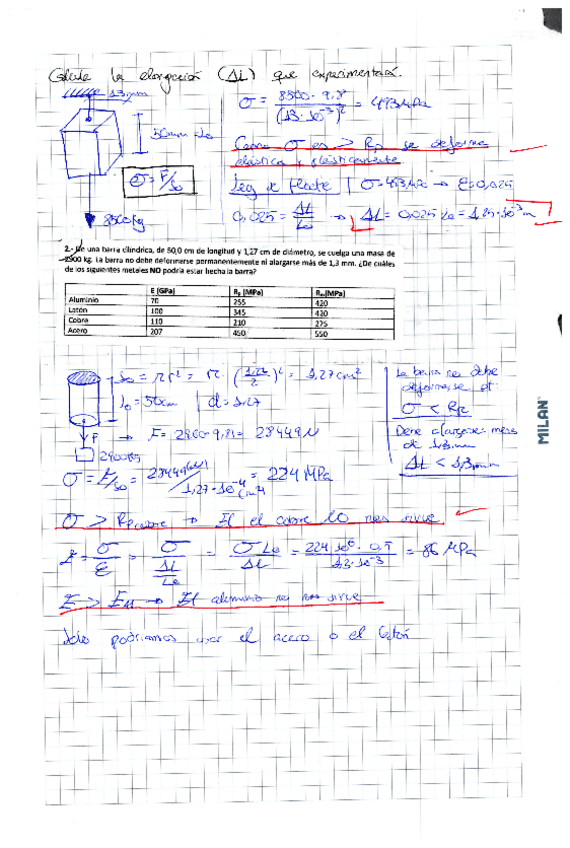 Calcule la elongación (ΔL) que experimentará.
13mm
σ = 8500 · 9,8 / (13 · 10⁻³)² = 493 MPa
50mm = Lo
Como σ es > Rp se deforma
elástica y plásticamente
σ = F/So
Ley de Hooke | σ = 493 MPa → ε = 0,025
8500 kg
0,025 = ΔL/Lo → ΔL = 0,025 · Lo = 1,25 · 10⁻³ m
2.- De una barra cilíndrica, de 50,0 cm de longitud y 1,27 cm de diámetro, se cuelga una masa de
2900 kg. La barra no debe deformarse permanentemente ni alargarse más de 1,3 mm. ¿De cuáles
de los siguientes metales NO podría estar hecha la barra?
E (GPa) Rp (MPa) Rm (MPa)
Aluminio 70 255 420
Latón 100 345 420
Cobre 110 210 275
Acero 207 450 550
So = πr² = π · (1,27/2)² = 1,27 cm²
lo = 50cm | d = 1,27
F
→ F = 2900 · 9,81 = 28449 N
2900kg
La barra no debe
deformarse pl:
σ < Rp
Debe alargarse menos
de 1,3 mm
ΔL < 1,3 mm
σ = F/So = 28449 (N) / 1,27 · 10⁻⁴ = 224 MPa
σ > Rp cobre → El cobre no nos sirve
E = σ/ε = σ / (ΔL/Lo) = σ Lo / ΔL = 224 · 10⁶ · 0,5 / 1,3 · 10⁻³ = 86 MPa
E > → El aluminio no nos sirve
Solo podríamos usar el acero o el latón
MILAN